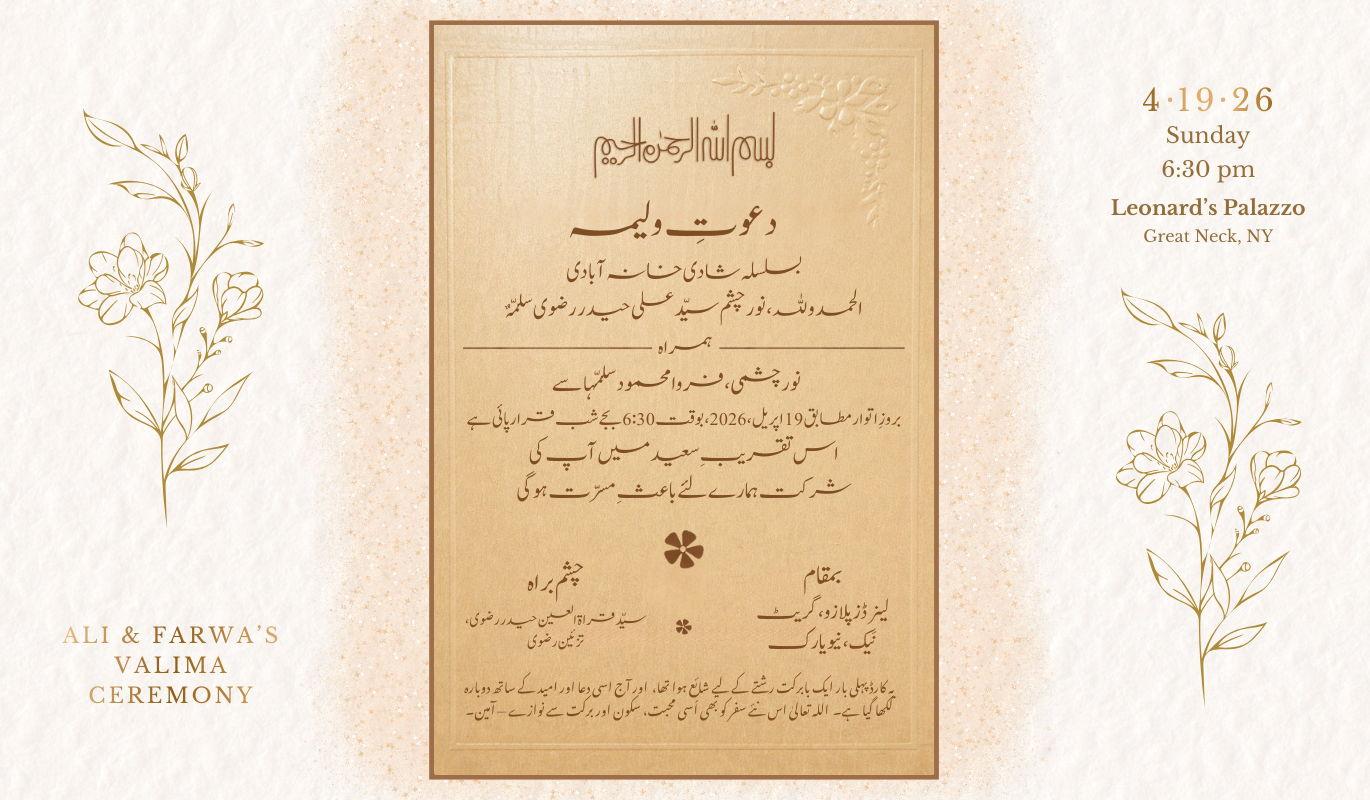 بسم الله الرحمن الرحيم
دعوتِ ولیمہ
بسلسلہ شادی خانہ آبادی
الحمدوللہ، نور چشم سیّد علی حیدر رضوی سلمّہٗ
ہمراہ
نور چشمی، فروا محمود سلمّہا سے
بروزِ اتوار مطابق 19 اپریل، 2026، بوقت 6:30 بجے شب قرار پائی ہے
اس تقریبِ سعید میں آپ کی
شرکت ہمارے لئے باعثِ مسرّت ہوگی
بمقام
لینرڈز پلازو، گریٹ
نیک، نیویارک
چشم براہ
سیّد قراۃ العین حیدر رضوی،
تزئین رضوی
یہ کارڈ پہلی بار ایک بابرکت رشتے کے لیے شائع ہوا تھا، اور آج اسی دعا اور امید کے ساتھ دوبارہ
لکھا گیا ہے۔ اللہ تعالیٰ اس نئے سفر کو بھی اُسی محبت، سکون اور برکت سے نوازے – آمین۔
ALI & FARWA'S
VALIMA
CEREMONY
4·19·26
Sunday
6:30 pm
Leonard's Palazzo
Great Neck, NY